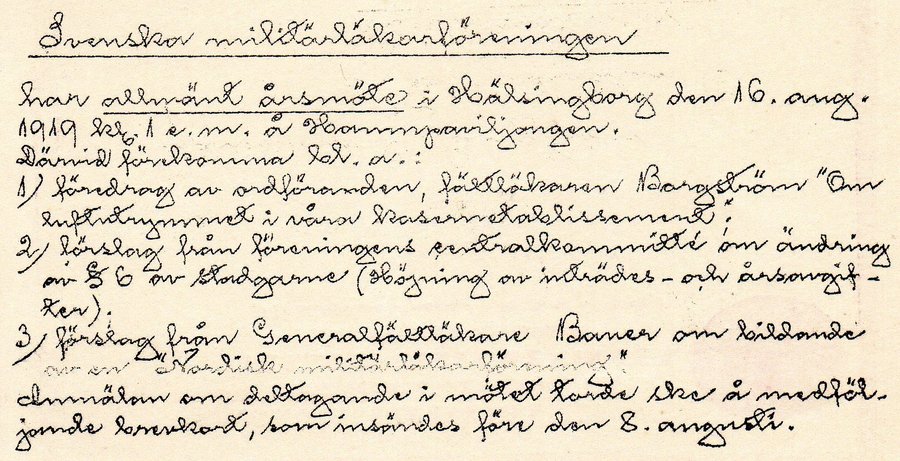 Svenska militärläkarföreningen
har allmänt årsmöte i Hälsingborg den 16. aug.
1919 kl. 1 e.m. å Hamnpaviljongen.
Därvid förekomma bl. a.:
1) föredrag av ordföranden, fältläkaren Bergström "Om
luftutrymmet i våra kasernetablissement".
2) förslag från föreningens centralkommitté om ändring
av § 6 av stadgarne (Höjning av inträdes- och årsavgif-
ter).
3) förslag från Generalfältläkare Bauer om bildande
av en "Nordisk militärläkarförening".
Anmälan om deltagande i mötet torde ske å medföl-
jande brevkort, som insändes före den 8. augusti.